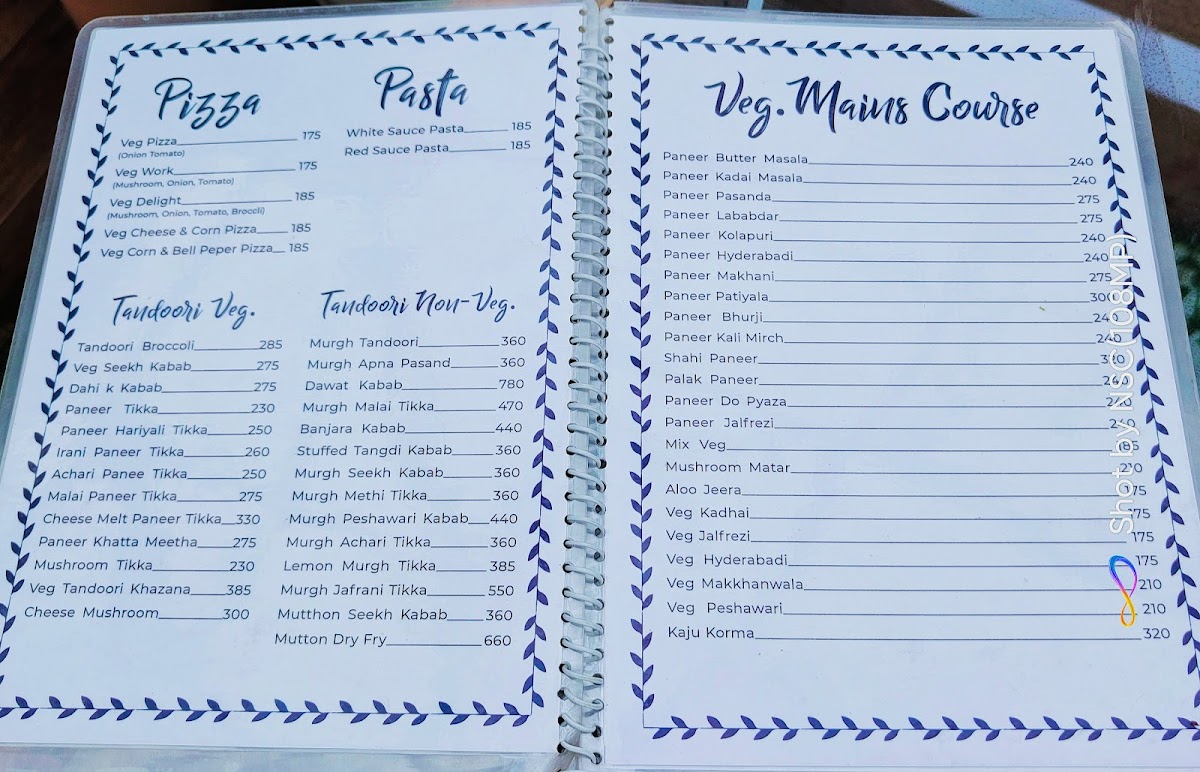 Pizza
Veg Pizza 175
(Onion Tomato)
Veg Work 175
(Mushroom, Onion, Tomato)
Veg Delight 185
(Mushroom, Onion, Tomato, Broccli)
Veg Cheese & Corn Pizza 185
Veg Corn & Bell Peper Pizza 185
Pasta
White Sauce Pasta 185
Red Sauce Pasta 185
Tandoori Veg.
Tandoori Broccoli 285
Veg Seekh Kabab 275
Dahi k Kabab 275
Paneer Tikka 230
Paneer Hariyali Tikka 250
Irani Paneer Tikka 260
Achari Panee Tikka 250
Malai Paneer Tikka 275
Cheese Melt Paneer Tikka 330
Paneer Khatta Meetha 275
Mushroom Tikka 230
Veg Tandoori Khazana 385
Cheese Mushroom 300
Tandoori Non-Veg.
Murgh Tandoori 360
Murgh Apna Pasand 360
Dawat Kabab 780
Murgh Malai Tikka 470
Banjara Kabab 440
Stuffed Tangdi Kabab 360
Murgh Seekh Kabab 360
Murgh Methi Tikka 360
Murgh Peshawari Kabab 440
Murgh Achari Tikka 360
Lemon Murgh Tikka 385
Murgh Jafrani Tikka 550
Mutthon Seekh Kabab 360
Mutton Dry Fry 660
Veg. Mains Course
Paneer Butter Masala 240
Paneer Kadai Masala 240
Paneer Pasanda 275
Paneer Lababdar 275
Paneer Kolapuri 240
Paneer Hyderabadi 240
Paneer Makhani 275
Paneer Patiyala 300
Paneer Bhurji 240
Paneer Kali Mirch 240
Shahi Paneer
Palak Paneer 240
Paneer Do Pyaza
Paneer Jalfrezi 240
Mix Veg
Mushroom Matar 210
Aloo Jeera 175
Veg Kadhai 175
Veg Jalfrezi 175
Veg Hyderabadi 175
Veg Makkhanwala 210
Veg Peshawari 210
Kaju Korma 320
Shot by NSC(108MP)